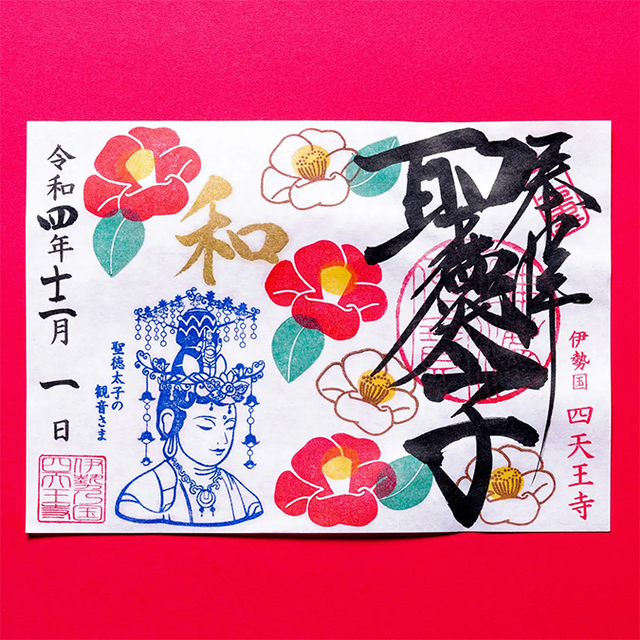 奉拝
聖徳太子
伊勢国 四天王寺
和
聖徳太子の
観音さま
令和四年十二月 一日
伊勢乃国
四天王寺